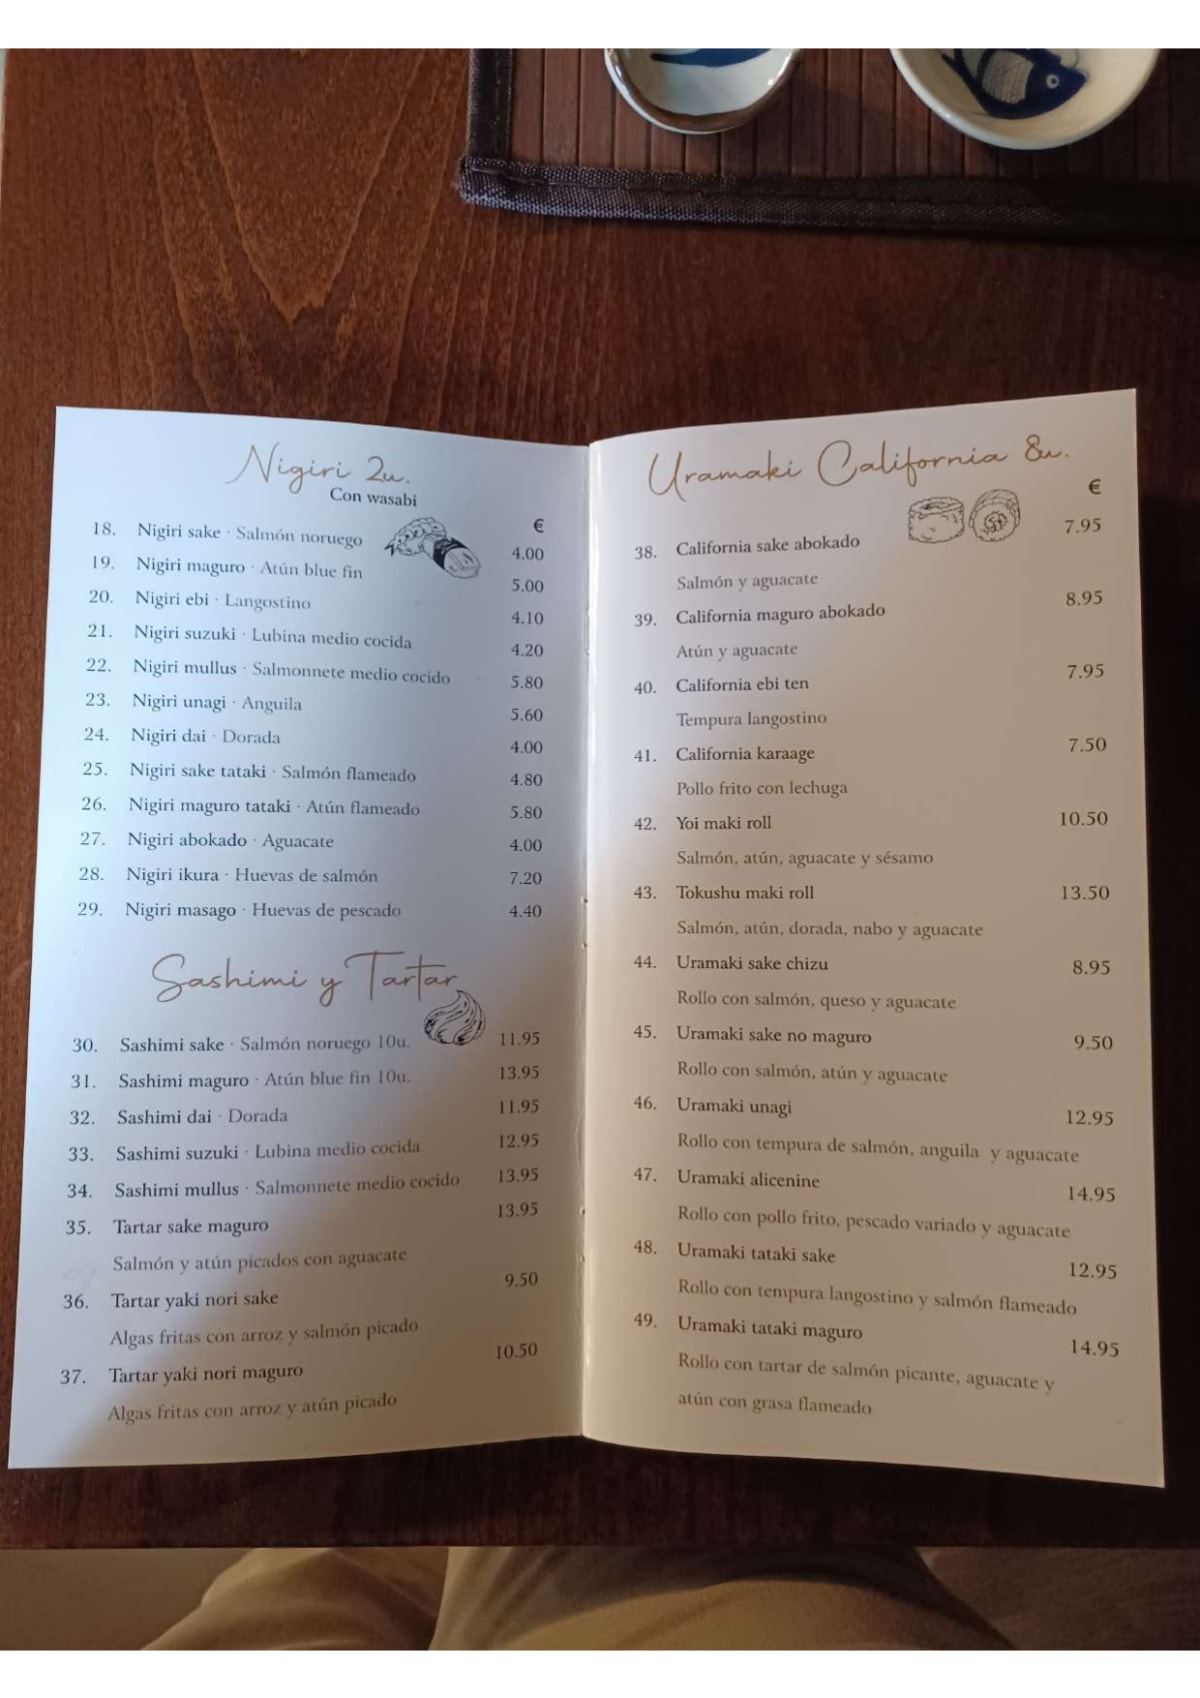 Nigiri 2u.
Con wasabi
€
18. Nigiri sake · Salmón noruego 4.00
19. Nigiri maguro · Atún blue fin 5.00
20. Nigiri ebi · Langostino 4.10
21. Nigiri suzuki · Lubina medio cocida 4.20
22. Nigiri mullus · Salmonnete medio cocido 5.80
23. Nigiri unagi · Anguila 5.60
24. Nigiri dai · Dorada 4.00
25. Nigiri sake tataki · Salmón flameado 4.80
26. Nigiri maguro tataki · Atún flameado 5.80
27. Nigiri abokado · Aguacate 4.00
28. Nigiri ikura · Huevas de salmón 7.20
29. Nigiri masago · Huevas de pescado 4.40
Sashimi y Tartar
30. Sashimi sake · Salmón noruego 10u. 11.95
31. Sashimi maguro · Atún blue fin 10u. 13.95
32. Sashimi dai · Dorada 11.95
33. Sashimi suzuki · Lubina medio cocida 12.95
34. Sashimi mullus · Salmonnete medio cocido 13.95
35. Tartar sake maguro 13.95
Salmón y atún picados con aguacate
36. Tartar yaki nori sake 9.50
Algas fritas con arroz y salmón picado
37. Tartar yaki nori maguro 10.50
Algas fritas con arroz y atún picado
Uramaki California 8u.
€
38. California sake abokado 7.95
Salmón y aguacate
39. California maguro abokado 8.95
Atún y aguacate
40. California ebi ten 7.95
Tempura langostino
41. California karaage 7.50
Pollo frito con lechuga
42. Yoi maki roll 10.50
Salmón, atún, aguacate y sésamo
43. Tokushu maki roll 13.50
Salmón, atún, dorada, nabo y aguacate
44. Uramaki sake chizu 8.95
Rollo con salmón, queso y aguacate
45. Uramaki sake no maguro 9.50
Rollo con salmón, atún y aguacate
46. Uramaki unagi 12.95
Rollo con tempura de salmón, anguila y aguacate
47. Uramaki alicenine 14.95
Rollo con pollo frito, pescado variado y aguacate
48. Uramaki tataki sake 12.95
Rollo con tempura langostino y salmón flameado
49. Uramaki tataki maguro 14.95
Rollo con tartar de salmón picante, aguacate y
atún con grasa flameado